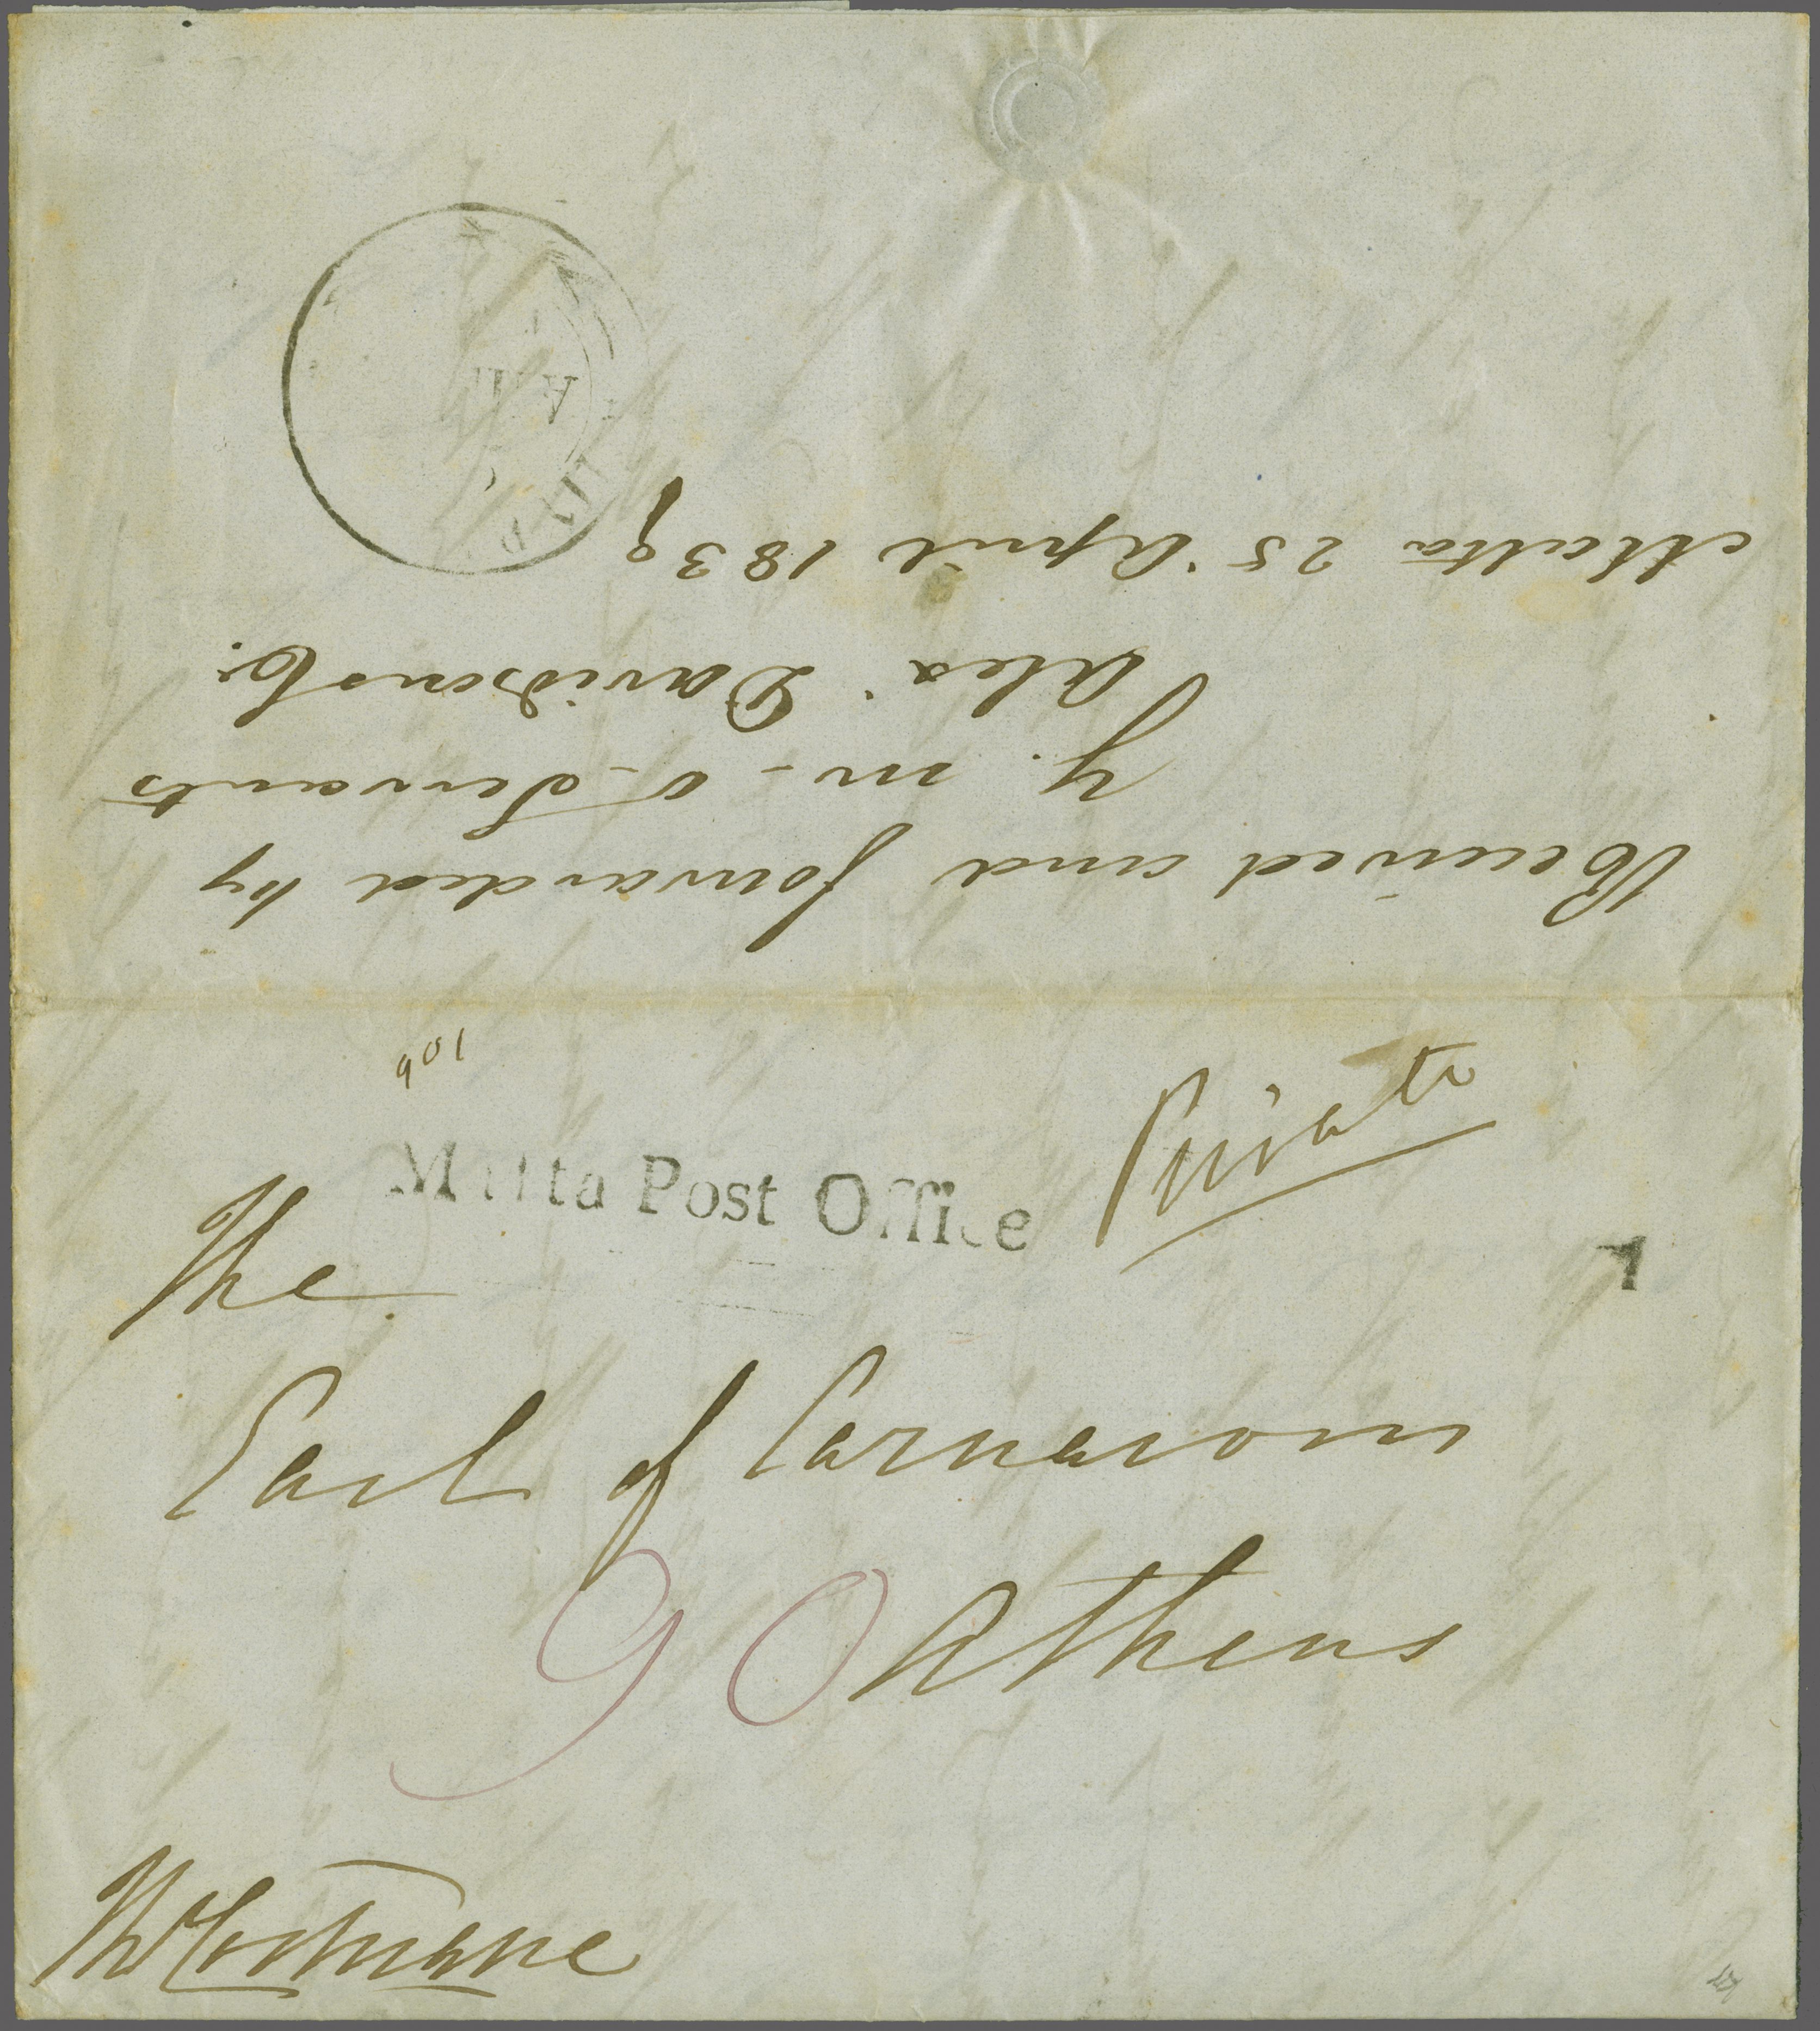 Received and forwarded by
y. m. o. Servants
Alexr. Davidson & Co.
Malta 25 April 1839
106
Malta Post Office
Private
1
The
Earl of Carnarvon
90
Athens
Th Cochrane